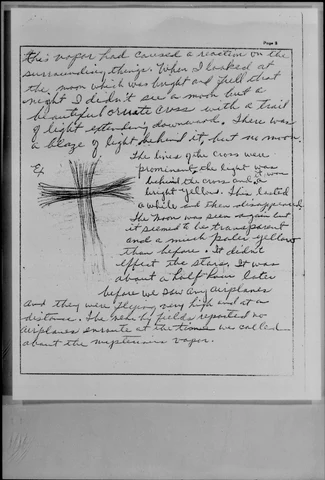 Page 2
this vapor had caused a reaction on the
surrounding things. When I looked at
the moon which was bright and full that
night I didn't see a moon but a
beautiful ornate cross with a trail
of light extending downward. There was
a blaze of light behind it, but no moon.
Ex
The lines of the cross were
prominent, the light was
behind the cross and it was
bright yellow. This lasted
a while and then disappeared.
The moon was seen again but
it seemed to be transparent
and a much paler yellow
than before. It didn't
effect the stars. It was
about a half hour later
before we saw any airplanes
and they were flying very high and at a
distance. The near by fields reported no
airplanes enroute at the time we called
about the mysterious vapor.